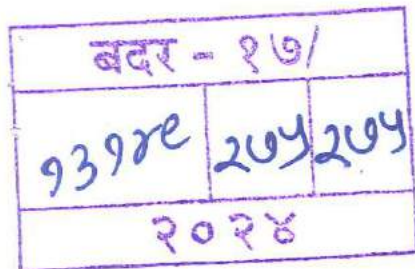 बदर - १७/
१३१४९ २७५ २७५
२०२४